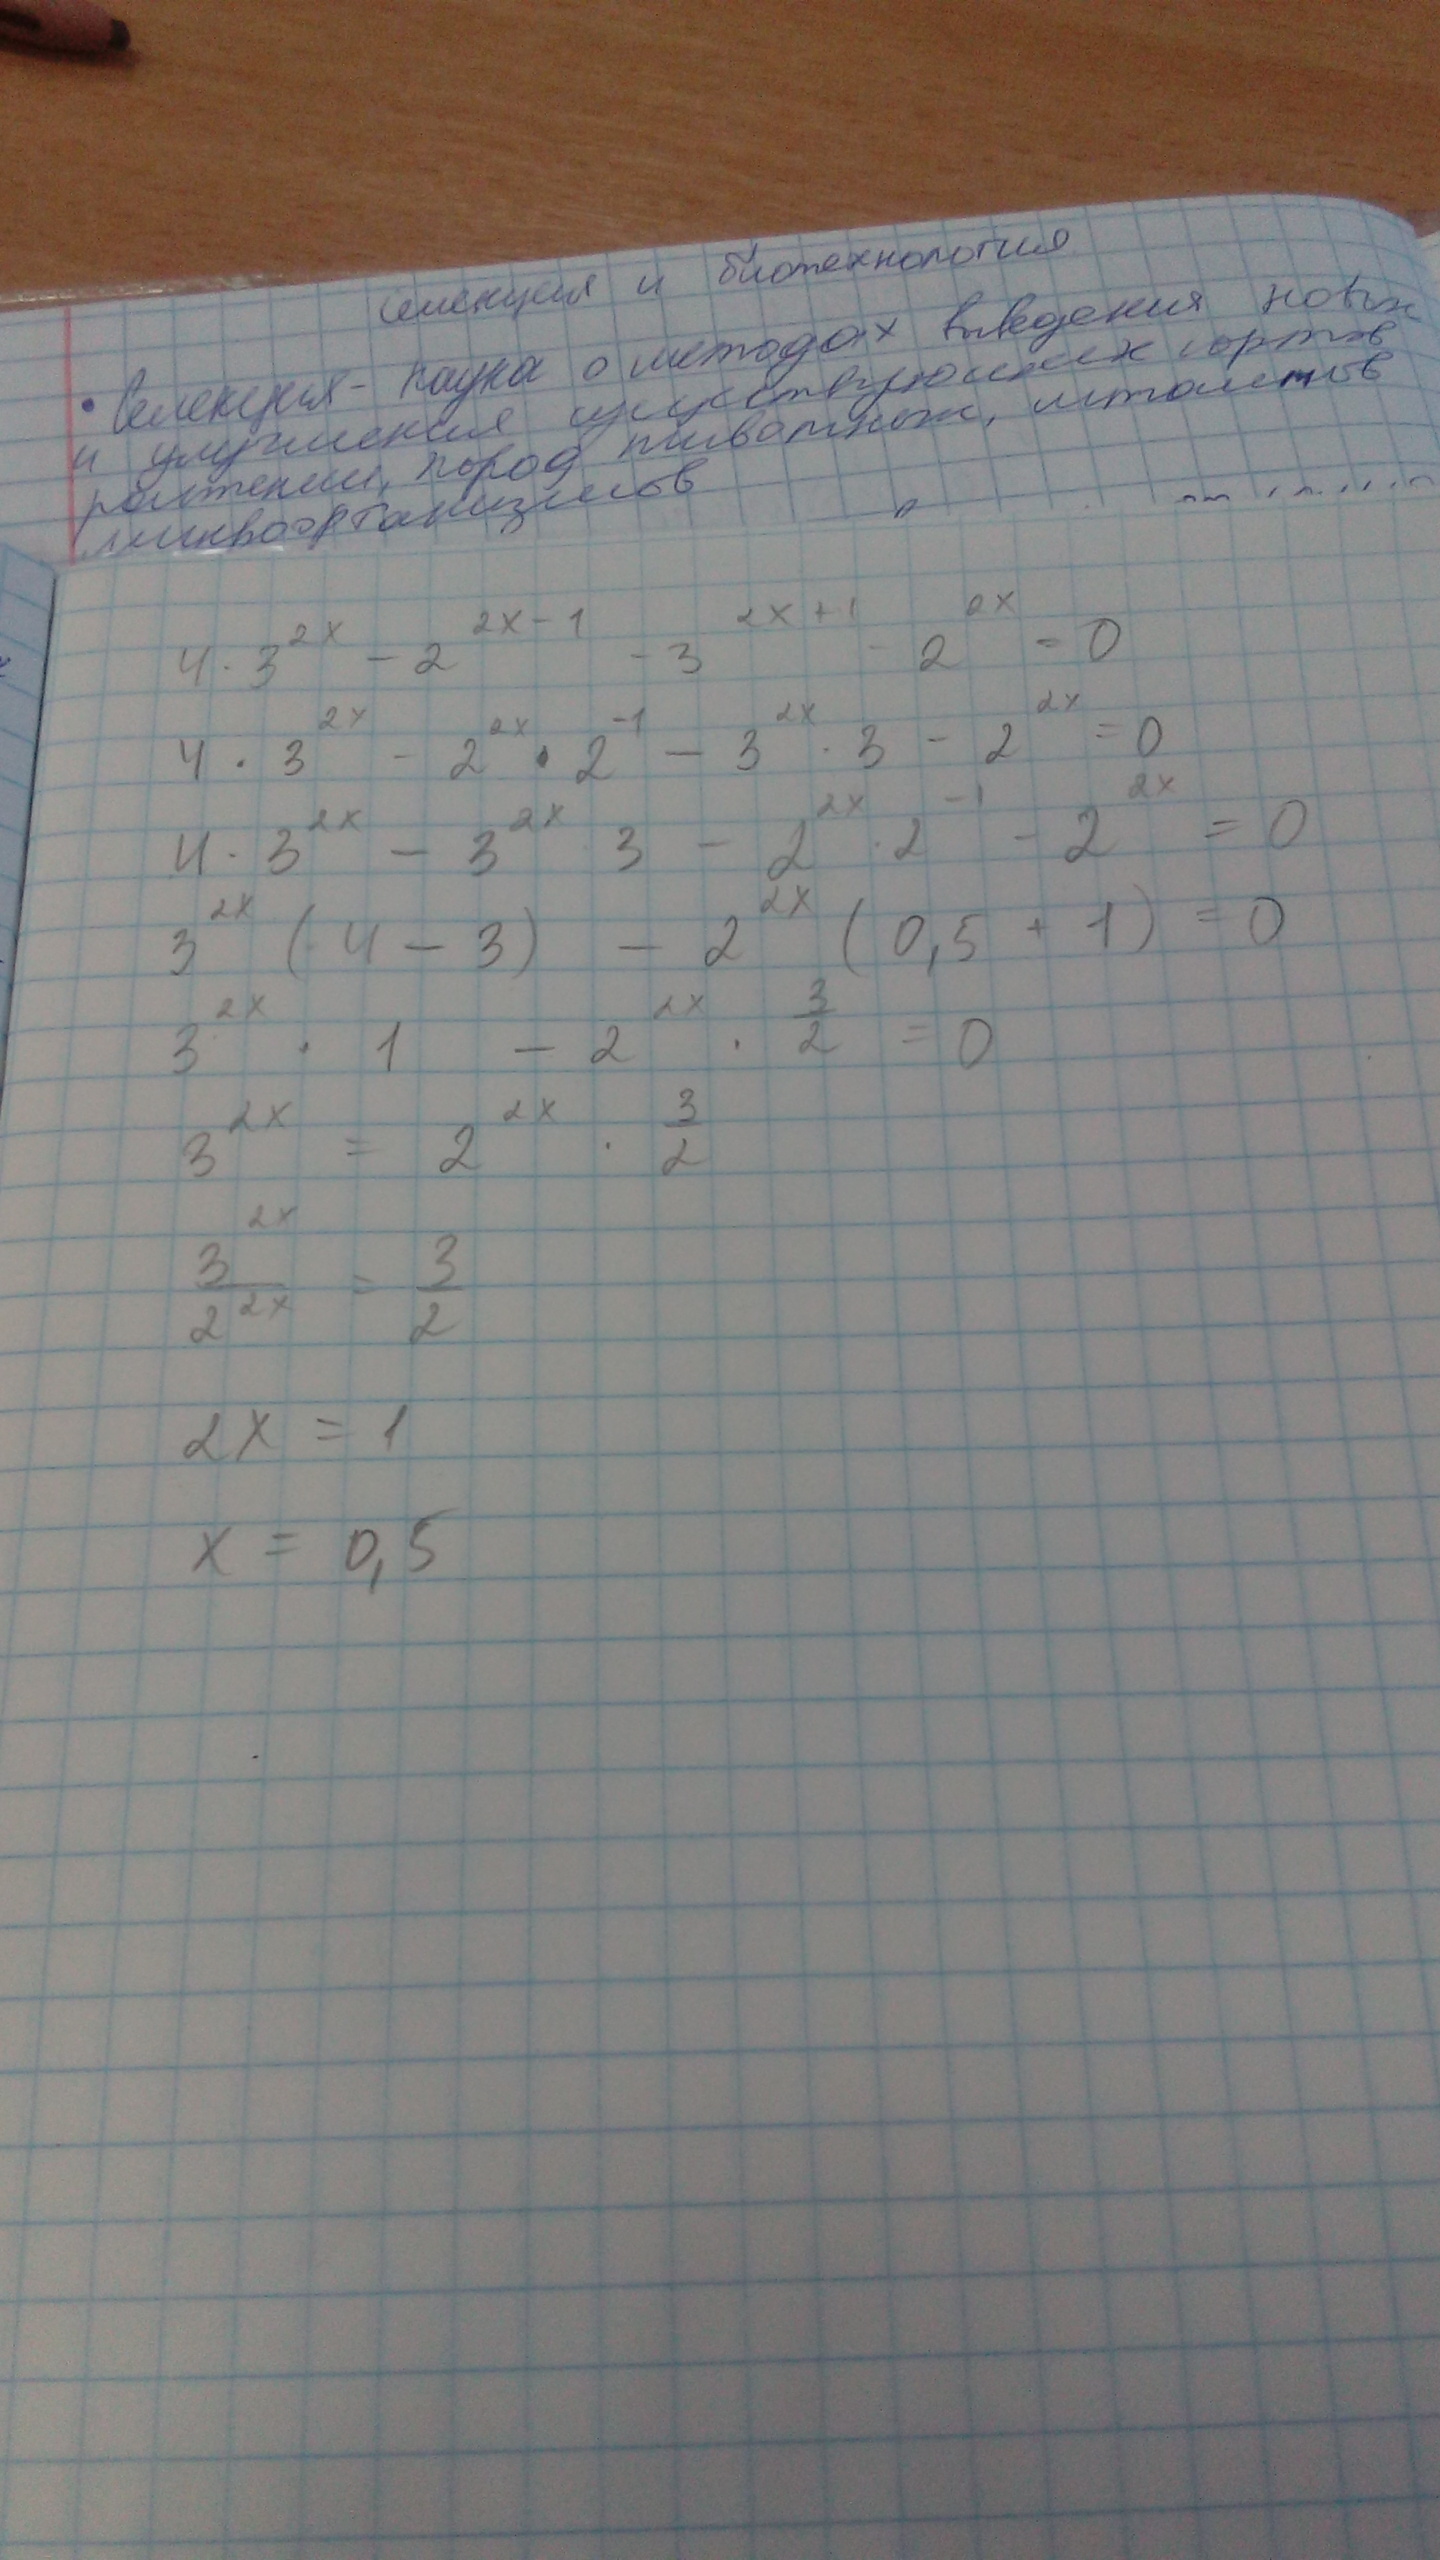 Селекция и биотехнология
• Селекция - наука о методах выведения новых
и улучшения существующих сортов
растений, пород животных, штаммов
микроорганизмов
4 · 3^{2x} - 2^{2x-1} - 3^{2x+1} - 2^{2x} = 0
4 · 3^{2x} - 2^{2x} · 2^{-1} - 3^{2x} · 3 - 2^{2x} = 0
4 · 3^{2x} - 3^{2x} 3 - 2^{2x} · 2^{-1} - 2^{2x} = 0
3^{2x} (4 - 3) - 2^{2x} (0,5 + 1) = 0
3^{2x} · 1 - 2^{2x} · 3/2 = 0
3^{2x} = 2^{2x} · 3/2
3^{2x}/2^{2x} = 3/2
2x = 1
x = 0,5